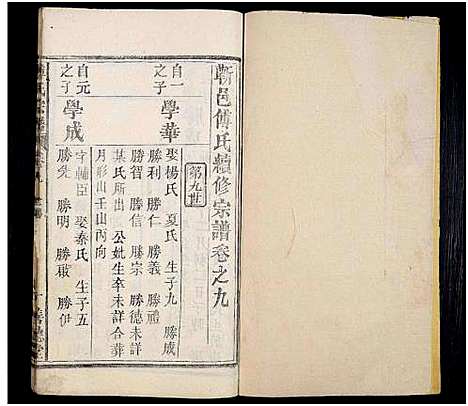 蘄邑傅氏續修宗譜卷之九
第九世
自一之子
學華
娶楊氏 夏氏 生子九 勝成
勝利 勝仁 勝義 勝禮
勝智 勝信 勝宗 勝德未詳
某氏所出 公妣生卒未詳合葬
月形山壬山丙向
自元之子
學成
字輔臣 娶秦氏 生子五
勝堯 勝明 勝啟 勝伊